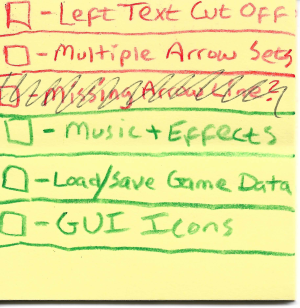 - Left Text Cut Off
- Multiple Arrow Sets
- Missing Arrow Line?
- Music + Effects
- Load/Save Game Data
- GUI Icons